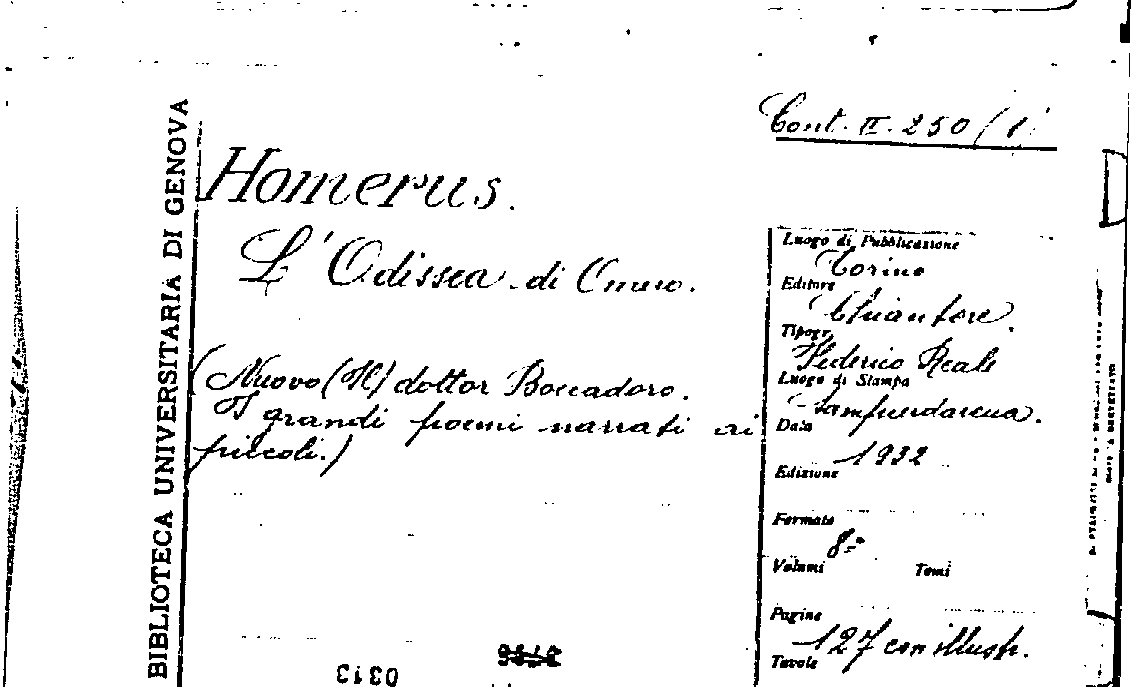 BIBLIOTECA UNIVERSITARIA DI GENOVA
Cont. II. 250/1
Homerus.
L'Odissea di Omero.
(Nuovo (Il) dottor Boccadoro.
I grandi poemi narrati ai
piccoli.)
Luogo di Pubblicazione
Torino
Editore
Chiantore.
Tipogr.
Federico Reale
Luogo di Stampa
Sampierdarena.
Data
1932
Edizione
Formato
8º
Volumi Tomi
Pagine
127 con illustr.
Tavole
0313